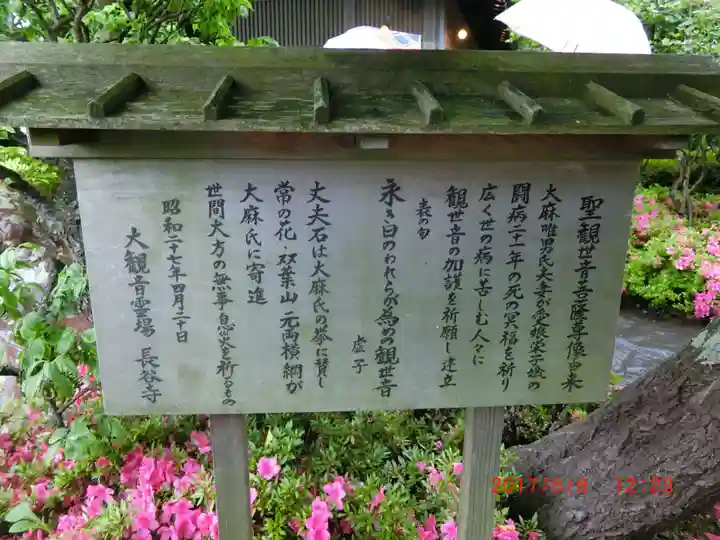 聖観世音菩薩尊像由来
大麻唯男氏夫妻が愛娘栄子嬢の
闘病二十一年の死の冥福を祈り
広く世の病に苦しむ人々に
観世音の加護を祈願し建立
表の句
永き日のわれらが為めの観世音
虚子
丈夫石は大麻氏の挙に賛し
常の花・双葉山元両横綱が
大麻氏に寄進
世間大方の無事息災を祈るもの
昭和二十七年四月二十日
大観音霊場 長谷寺
2017/6/6 12:23